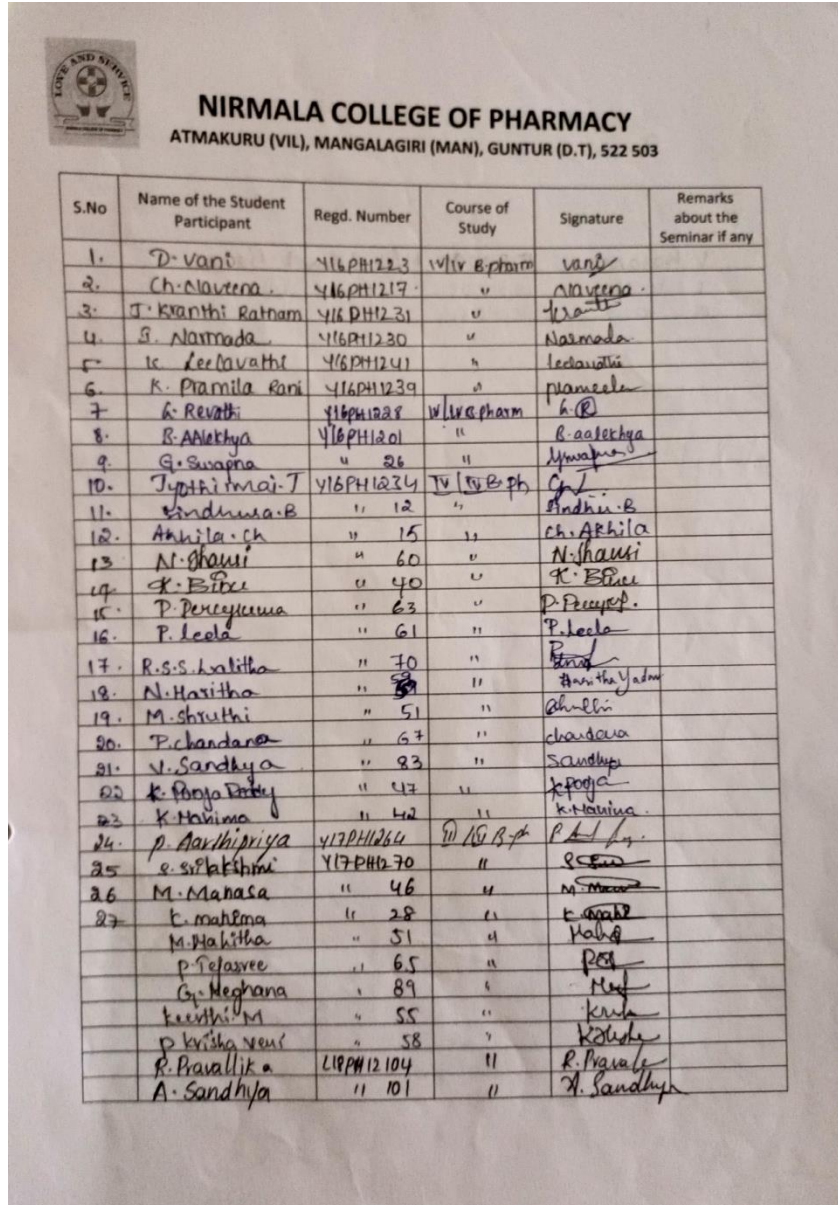 LOVE AND SERVICE
NIRMALA COLLEGE OF PHARMACY
ATMAKURU (VIL), MANGALAGIRI (MAN), GUNTUR (D.T), 522 503
S.No Name of the Student Participant Regd. Number Course of Study Signature Remarks about the Seminar if any
1. D. Vani Y16PH1223 IV/IV B.pharm vani
2. Ch. Naveena. Y16PH1217 " Naveena.
3. J. Kranthi Ratnam Y16PH1231 " Kranthi
4. S. Narmada Y16PH1230 " Narmada
5 K. Leelavathi Y16PH1241 " leelavathi
6. K. Pramila Rani Y16PH1239 " prameela
7 G. Revathi Y16PH1228 IV/IV B pharm G. R
8. B. AAlekhya Y16PH1201 " B. aalekhya
9. G. Swapna " 26 "
10. Jyothirmai. J Y16PH1234 IV/IV B. ph
11. Sindhura. B " 12 " Sindhu. B
12. Akhila. Ch " 15 " Ch. Akhila
13 N. Jhansi " 60 " N. Jhansi
14 K. " 40 " K.
15. P. " 63 " P.
16. P. Leela " 61 " P. Leela
17. R.S.S. Lalitha " 70 "
18. N. Haritha " 59 " Haritha Yadav
19. M. Shruthi " 51 " Shruthi
20. P. Chandana " 67 " chandana
21. V. Sandhya " 83 " Sandhya
22 K. Pooja Reddy " 47 " K Pooja
23 K. Mahima " 42 " K. Mahima.
24. P. Aarthipriya Y17PH1264 B. ph
25 S. Srilakshmi Y17PH1270 "
26 M. Manasa " 46 " M.
27 K. mahima " 28 " K.
M. Mahitha " 51 "
P. Tejasree " 65 "
G. Meghana " 89 "
Keerthi. M " 55 "
P krisha veni " 58 "
R. Pravallika L18PH12104 " R. Pravale
A. Sandhya " 101 " A. Sandhya